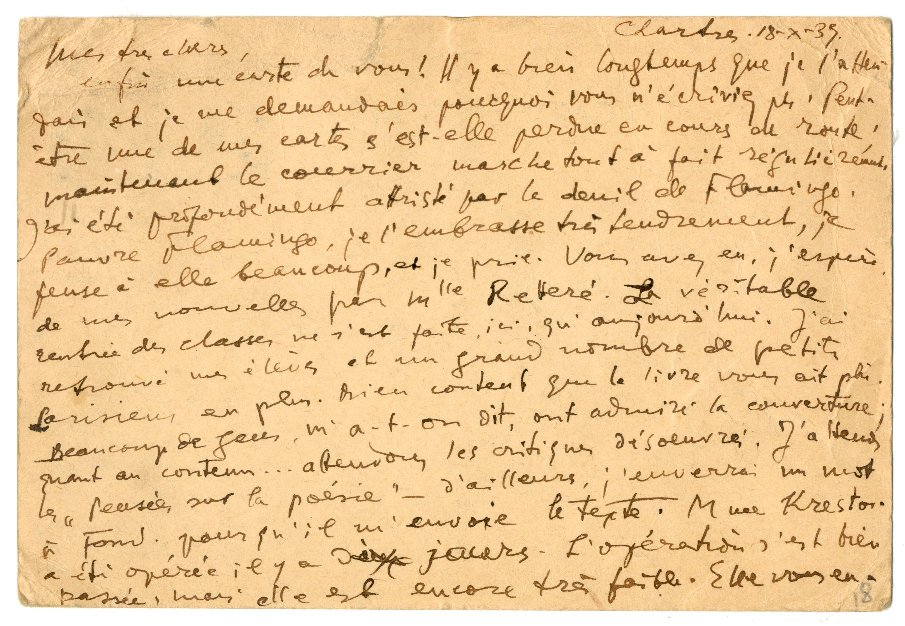 Chartres. 18-X-39.
Mes tres chers,
enfin une carte de vous! Il y a bien longtemps que je l'atten-
dais et je me demandais pourquoi vous n'écriviez ps. Peut-
être une de mes cartes s'est-elle perdue en cours de route,
maintenant le courrier marche tout à fait régulièrement.
J'ai été profondément attristé par le deuil de Flamingo.
Pauvre Flamingo, je l'embrasse très tendrement, je
pense à elle beaucoup, et je prie. Vous avez eu, j'espère,
de mes nouvelles par Mlle. La véritable
rentrée des classes ne s'est faite, ici, qu'aujourd'hui. J'ai
retrouvé mes élèves et un grand nombre de petits
Parisiens en plus. Bien content que le livre vous ait plu.
Beaucoup de gens, m'a-t-on dit, ont admiré la couverture;
quant au contenu... attendons les critiques désoeuvrés. J'attends
les "Pensées sur la poésie" — d'ailleurs, j'enverrai un mot
à Fond. pour qu'il m'envoie le texte. Mme Krestov-
a été opérée il y a jours. L'opération s'est bien
passée, mais elle est encore très faible. Elle vous en-
18